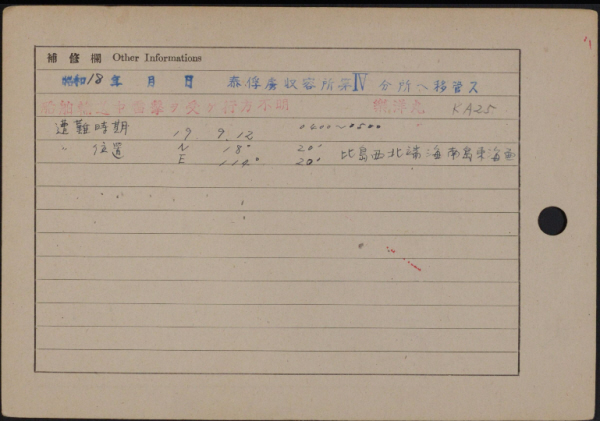 補修欄 Other Informations
昭和18年 月 日 泰俘虜収容所第IV分所ヘ移管ス
船舶輸送中雷撃ヲ受ケ行方不明 楽洋丸 KA25
遭難時期 19 9.12 0400〜0500
〃 位置 N 18° 20' 比島西北端海南島東海面
E 114° 20'